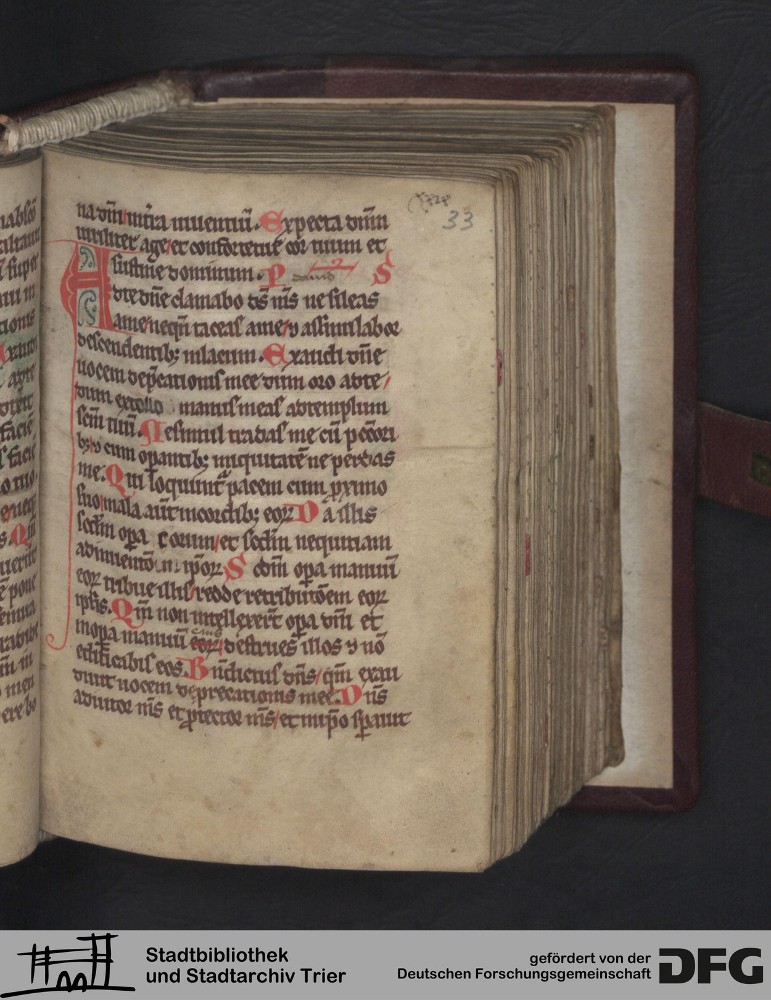 na dn̄i in t̄ra uiuentiū. Expecta dn̄m
uiriliter age et confortetur cor tuum et
sustine dominum. P dauid S
Ad te dn̄e clamabo ds̄ ms̄ ne sileas
a me nequn̄ taceas a me ⁊ assimilabor
descendentibꝫ in lacum. Exaudi dn̄e
uocem dep̄cationis mee dum oro ad te
dum extollo manus meas ad templum
scm̄ tuū. Ne simul tradas me cū pecc̄ori
bꝫ ⁊ cum opantibꝫ iniquitatē ne perdas
me. Qui loquunt̄ pacem cum ꝓximo
suo mala aūt in cordibꝫ eoꝝ Da illis
scd̄m opa eorum et scd̄m nequitiam
adinuentō n. ip̄oꝝ Scd̄m opa manuū
eoꝝ tribue illis redde retributōem eoꝝ
ipsis. Qm̄ non intellexer̄t opa dn̄i et
in opa manuū eius eoꝝ destrues illos ⁊ nō
edificabis eos. Bn̄dictus dn̄s qm̄ exau
diuit uocem deprecationis mee. Dn̄s
adiutor ms̄ et ꝓtector ms̄ et in ip̄o sꝑauit
33
Stadtbibliothek
und Stadtarchiv Trier
gefördert von der
Deutschen Forschungsgemeinschaft
DFG